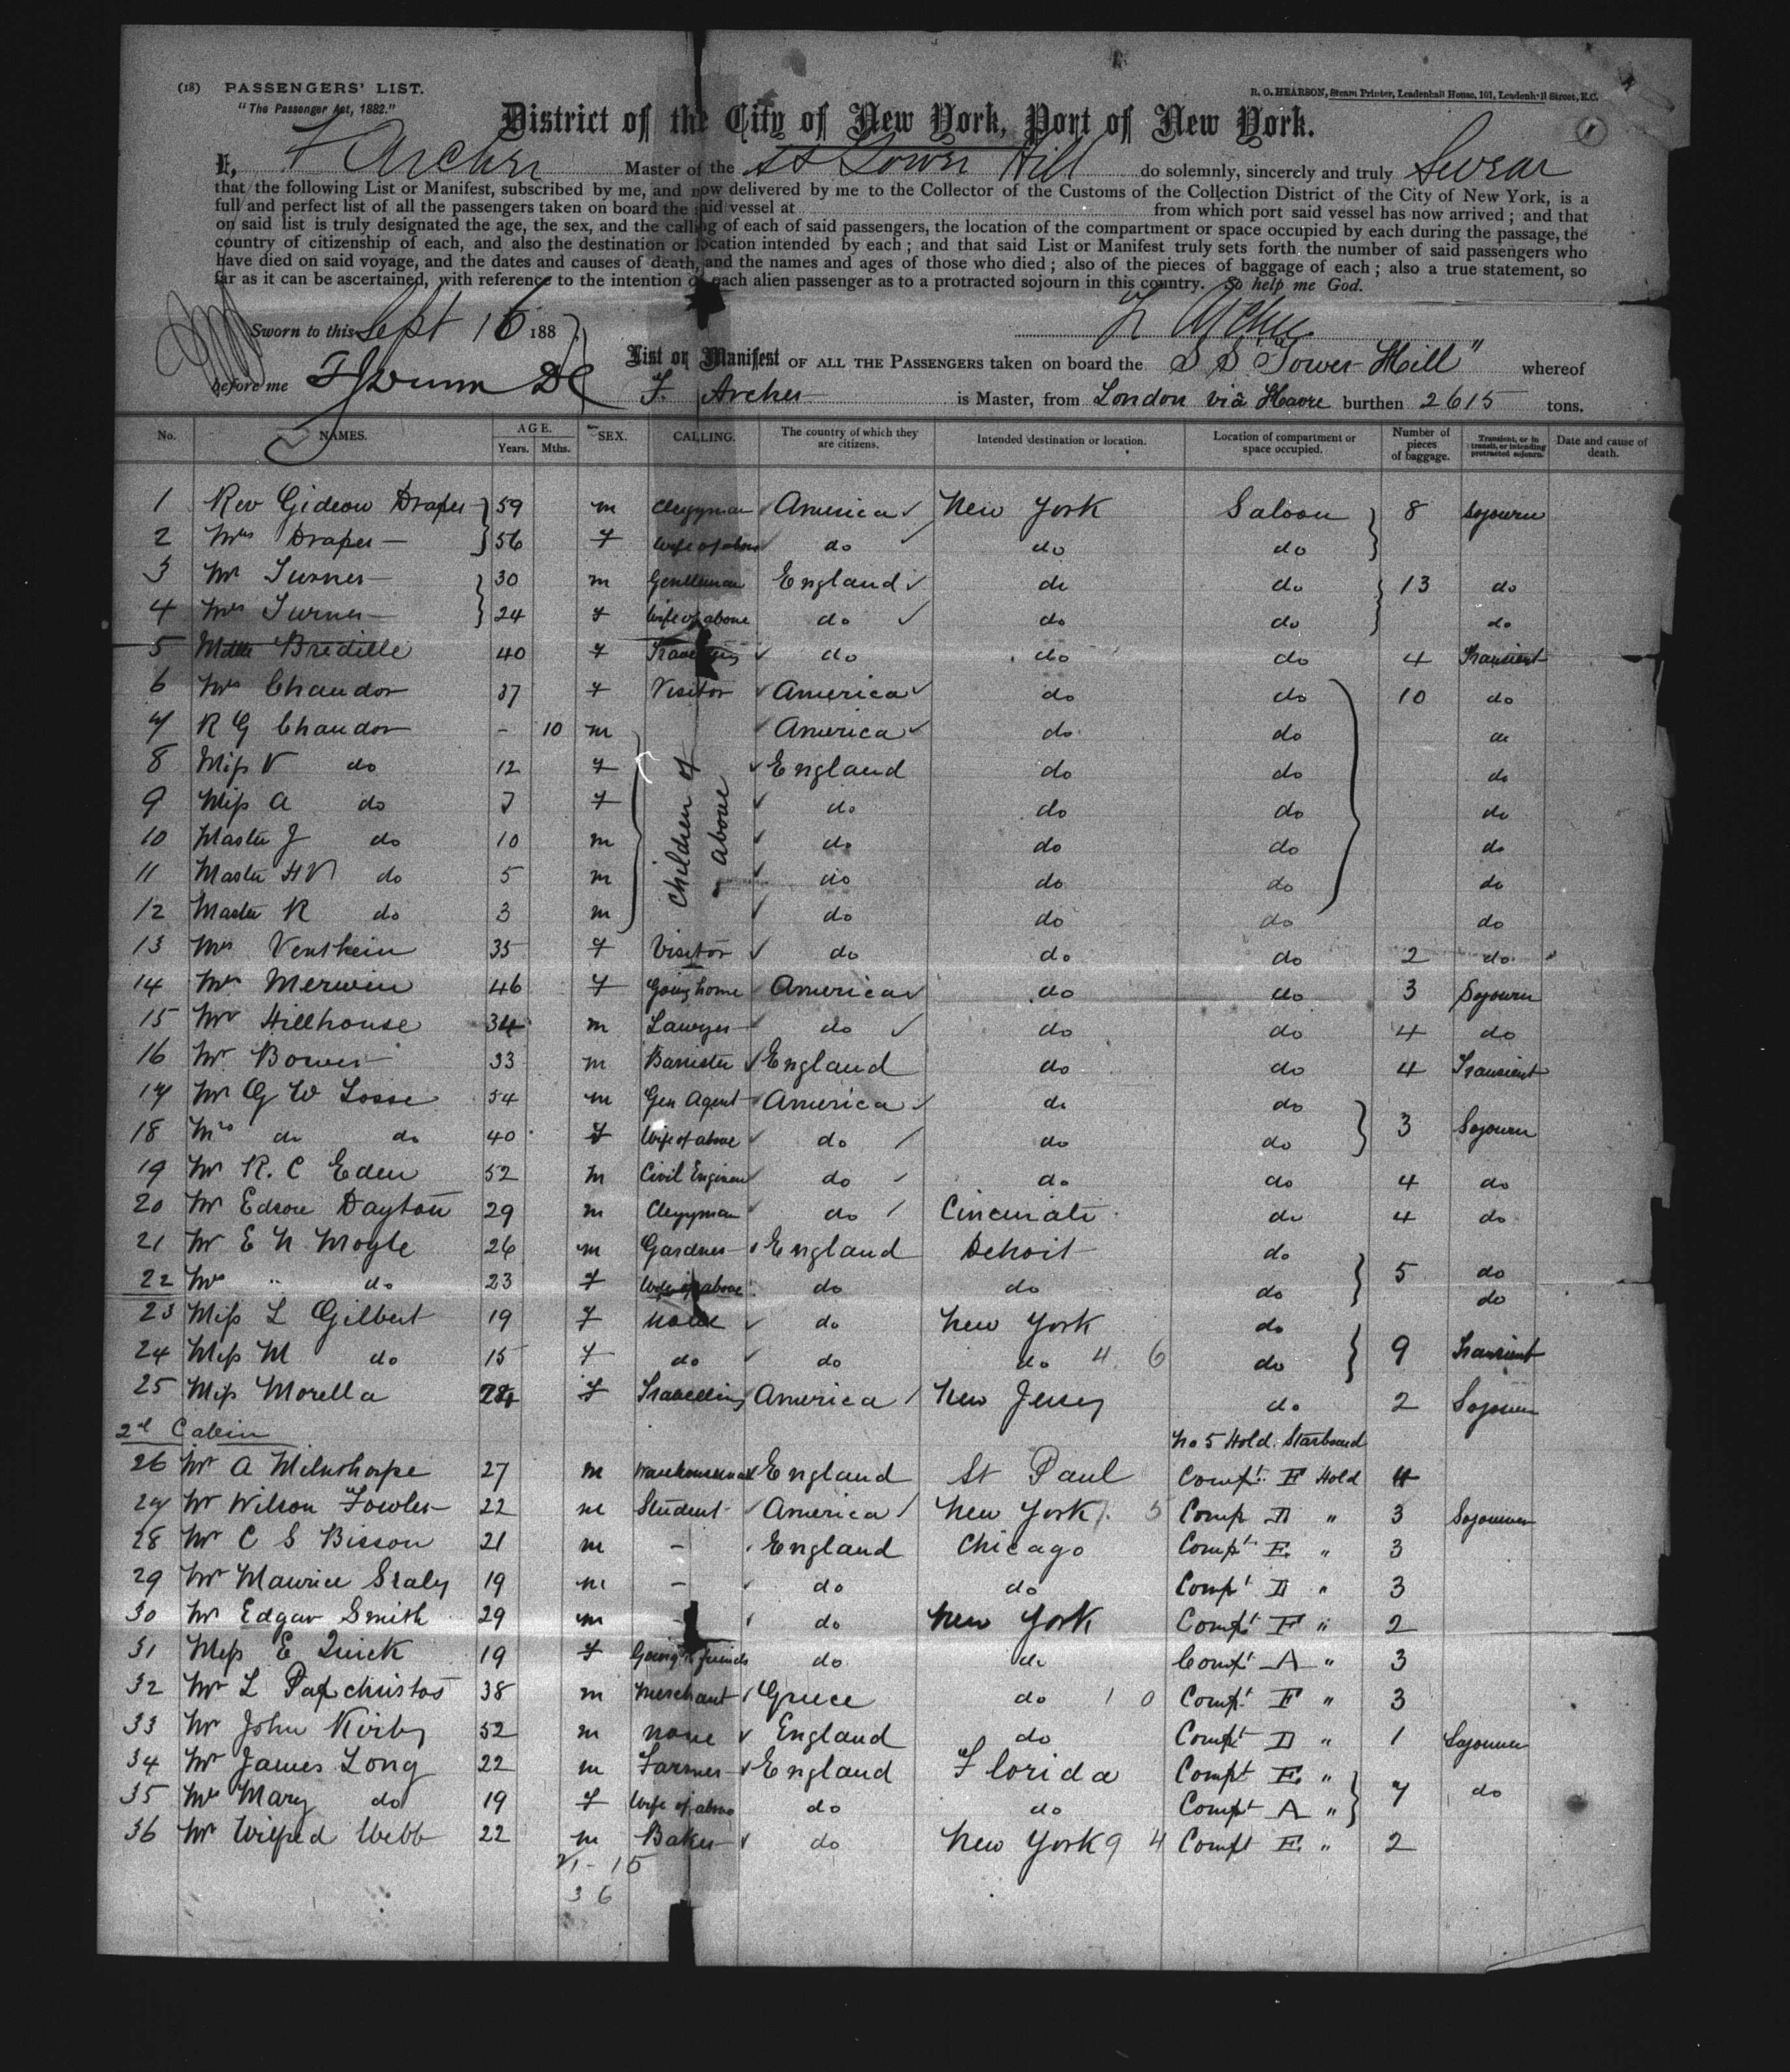 (18) PASSENGERS' LIST.
"The Passenger Act, 1882."
R. O. HEARSON, Steam Printer, Leadenhall House, 101, Leadenhall Street, E.C.
1
District of the City of New York, Port of New York.
I, F Archer Master of the SS Tower Hill do solemnly, sincerely and truly Swear
that the following List or Manifest, subscribed by me, and now delivered by me to the Collector of the Customs of the Collection District of the City of New York, is a
full and perfect list of all the passengers taken on board the said vessel at from which port said vessel has now arrived; and that
on said list is truly designated the age, the sex, and the calling of each of said passengers, the location of the compartment or space occupied by each during the passage, the
country of citizenship of each, and also the destination or location intended by each; and that said List or Manifest truly sets forth the number of said passengers who
have died on said voyage, and the dates and causes of death, and the names and ages of those who died; also of the pieces of baggage of each; also a true statement, so
far as it can be ascertained, with reference to the intention of each alien passenger as to a protracted sojourn in this country. So help me God.
Sworn to this Sept 16 188
F Archer
before me
List or Manifest OF ALL THE PASSENGERS taken on board the S S "Tower Hill" whereof
F. Archer is Master, from London viâ Havre burthen 2615 tons.
No. NAMES. AGE. Years. Mths. SEX. CALLING. The country of which they are citizens. Intended destination or location. Location of compartment or space occupied. Number of pieces of baggage. Transient, or in transit, or intending protracted sojourn. Date and cause of death.
1 Rev Gideon Draper 59 m Clergyman America New York Saloon 8 Sojourn
2 Mrs Draper 56 F Wife of above do do do
3 Mr Turner 30 m Gentleman England do do 13 do
4 Mrs Turner 24 F Wife of above do do do do
5 Mdlle Bredille 40 F Travelling do do do 4 Transient
6 Mrs Chandor 37 F Visitor America do do 10 do
7 R G Chandor - 10 m America do do do
8 Miss V do 12 F children of above England do do do
9 Miss A do 7 F do do do do
10 Master J do 10 m do do do do
11 Master HV do 5 m do do do do
12 Master R do 3 m do do do do
13 Mrs Ventkein 35 F Visitor do do do 2 do
14 Mrs Merwin 46 F Going home America do do 3 Sojourn
15 Mr Hillhouse 34 m Lawyer do do do 4 do
16 Mr Bower 33 m Barrister England do do 4 Transient
17 Mr G W Losse 54 m Gen Agent America do do 3 Sojourn
18 Mrs do do 40 F Wife of above do do do
19 Mr R. C Eden 52 m Civil Engineer do do do 4 do
20 Mr Edson Dayton 29 m Clergyman do Cincinati do 4 do
21 Mr E N Moyle 26 m Gardner England Detroit do 5 do
22 Mrs " do 23 F Wife of above do do do do
23 Miss L Gilbert 19 F none do New York do
24 Miss M do 15 F do do do 4 6 do 9 Transient
25 Miss Morella F Travelling America New Jersey do 2 Sojourn
2d Cabin No 5 Hold. Starboard
26 Mr A Milnthorpe 27 m Warehouseman England St Paul Compt. F Hold 4
27 Mr Wilson Fowler 22 m Student America New York 7. 5 Comp D " 3 Sojourner
28 Mr C S Bisson 21 m - England Chicago Compt E. " 3
29 Mr Maurice Sealy 19 m - do do Compt D " 3
30 Mr Edgar Smith 29 m - do New York Compt F " 2
31 Miss E Quick 19 F Going to friends do do Compt A " 3
32 Mr L Papchristos 38 m Merchant Greece do 1 0 Compt F " 3
33 Mr John Kirby 52 m none England do Compt D " 1 Sojourner
34 Mr James Long 22 m Farmer England Florida Compt E. " 7 do
35 Mrs Mary do 19 F Wife of above do do Compt A "
36 Mr Wilfred Webb 22 m Baker do New York 9 4 Compt E. " 2
21 - 15
36